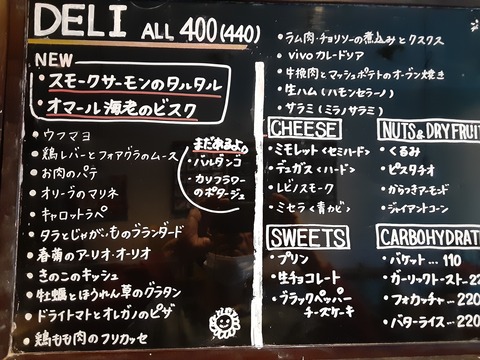 DELI ALL 400(440)
NEW
・スモークサーモンのタルタル
・オマール海老のビスク
・ウフマヨ
・鶏レバーとフォアグラのムース
・お肉のパテ
・オリーヴのマリネ
・キャロットラペ
・タラとじゃがいものブランダード
・春菊のアーリオ・オーリオ
・きのこのキッシュ
・牡蠣とほうれん草のグラタン
・ドライトマトとオレガノのピザ
・鶏もも肉のフリカッセ
まだあるよ。
・バルダンゴ
・カリフラワー
のポタージュ
・ラム肉・チョリソーの煮込みとクスクス
・vivoカレードリア
・牛挽肉とマッシュポテトのオーブン焼き
・生ハム(ハモンセラーノ)
・サラミ(ミラノサラミ)
CHEESE
・ミモレット<セミハード>
・デュガス<ハード>
・レピノスモーク
・ミセラ<青カビ>
NUTS&DRYFRUIT
・くるみ
・ピスタチオ
・からつきアーモンド
・ジャイアントコーン
SWEETS
・プリン
・生チョコレート
・ブラックペッパー
チーズケーキ
CARBOHYDRAT
・バゲット… 110
・ガーリックトースト…22
・フォカッチャ…220
・バターライス…220